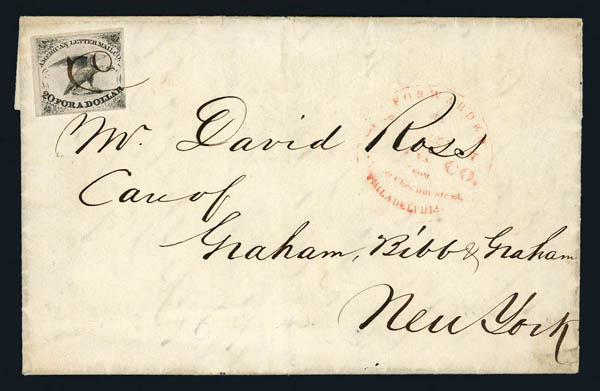 AMERICAN LETTER MAIL CO.
20 FOR A DOLLAR
Mr. David Ross
Care of
Graham, Bibb & Graham
New York
FORWARDED
CO.
FROM
Chesnut Street,
PHILADELPHIA